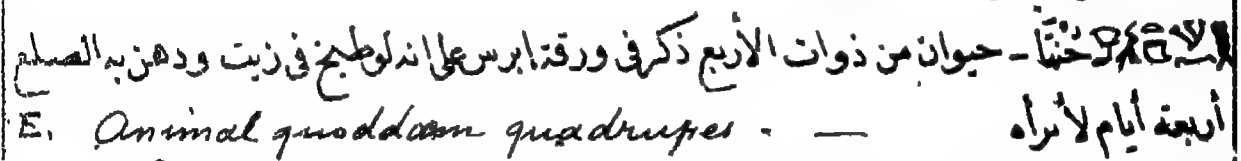 حُنْتَا - حيوان من ذوات الأربع ذكر فى ورقة ابرس على انه لو طبخ فى زيت ودهن به الصلع
أربعة أيام لأبرأه
E. Animal quoddam quadrupes . —